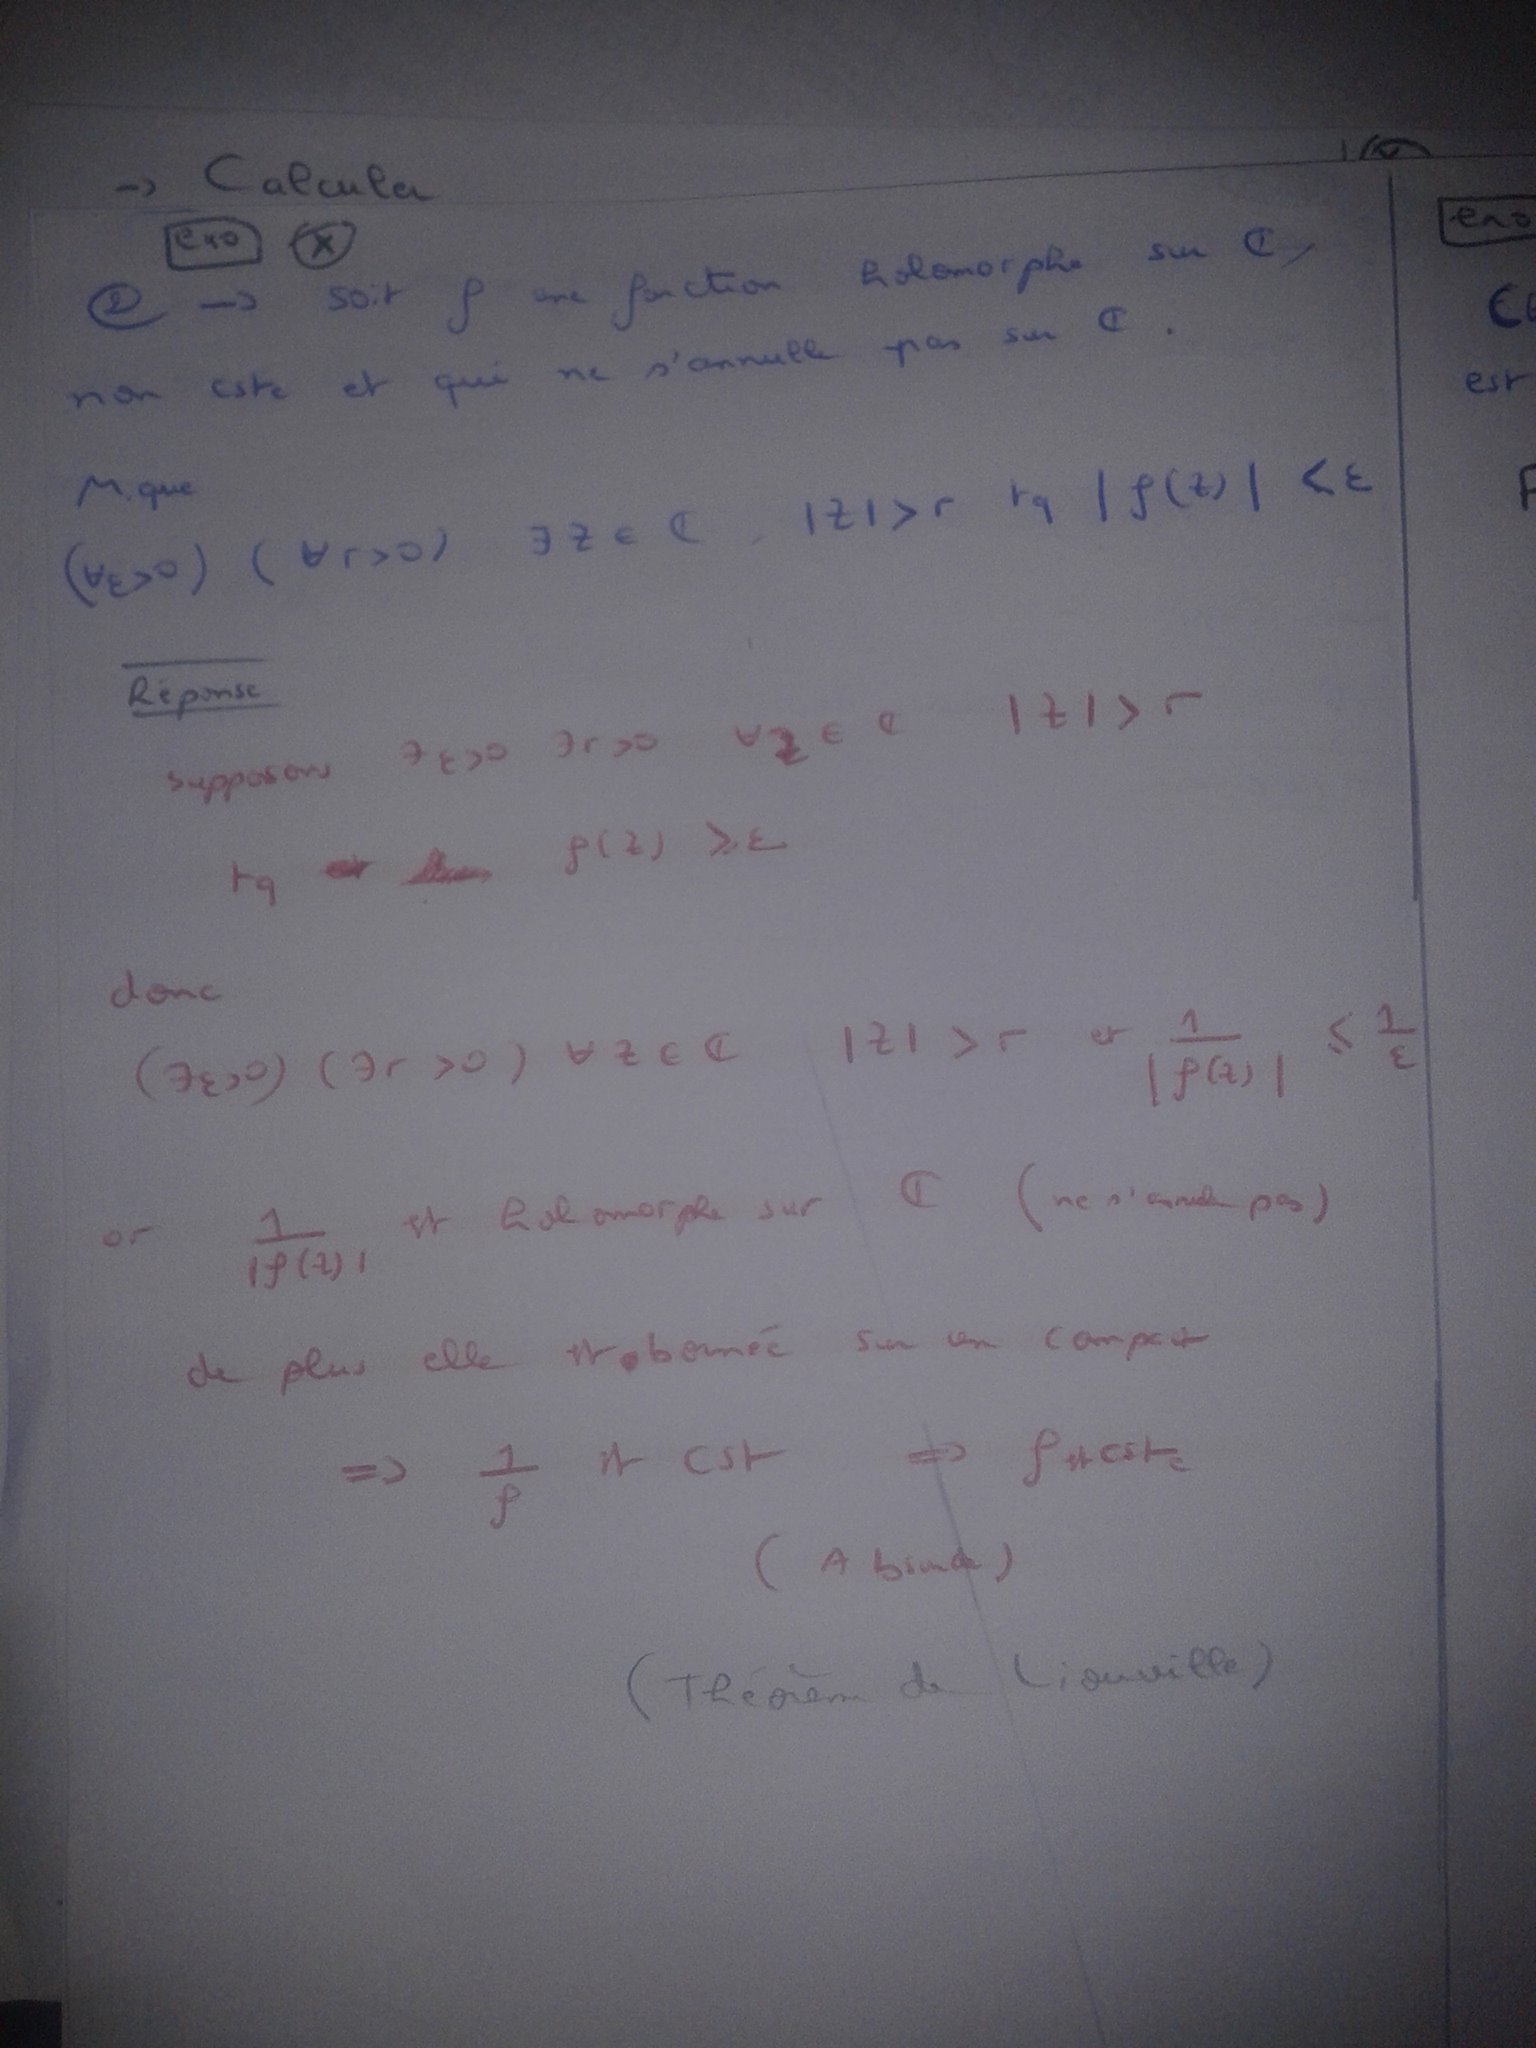 → Calculer
exo ⊗
② → soit f une fonction holomorphe sur ℂ,
non cste et qui ne s'annulle pas sur ℂ.
M. que
(∀ε>0) (∀r>0) ∃z∈ℂ, |z|>r tq |f(z)| <ε
Réponse
supposons ∃ε>0 ∃r>0 ∀z∈ℂ |z|>r
tq f(z) ≥ε
donc
(∃ε>0) (∃r>0) ∀z∈ℂ |z|>r et 1/|f(z)| ≤ 1/ε
or 1/|f(z)| est holomorphe sur ℂ (ne s'annule pas)
de plus elle est bornée sur un compact
=> 1/f est cst => f est cste
(Absurde)
(Théorèm de Liouville)
exo
est